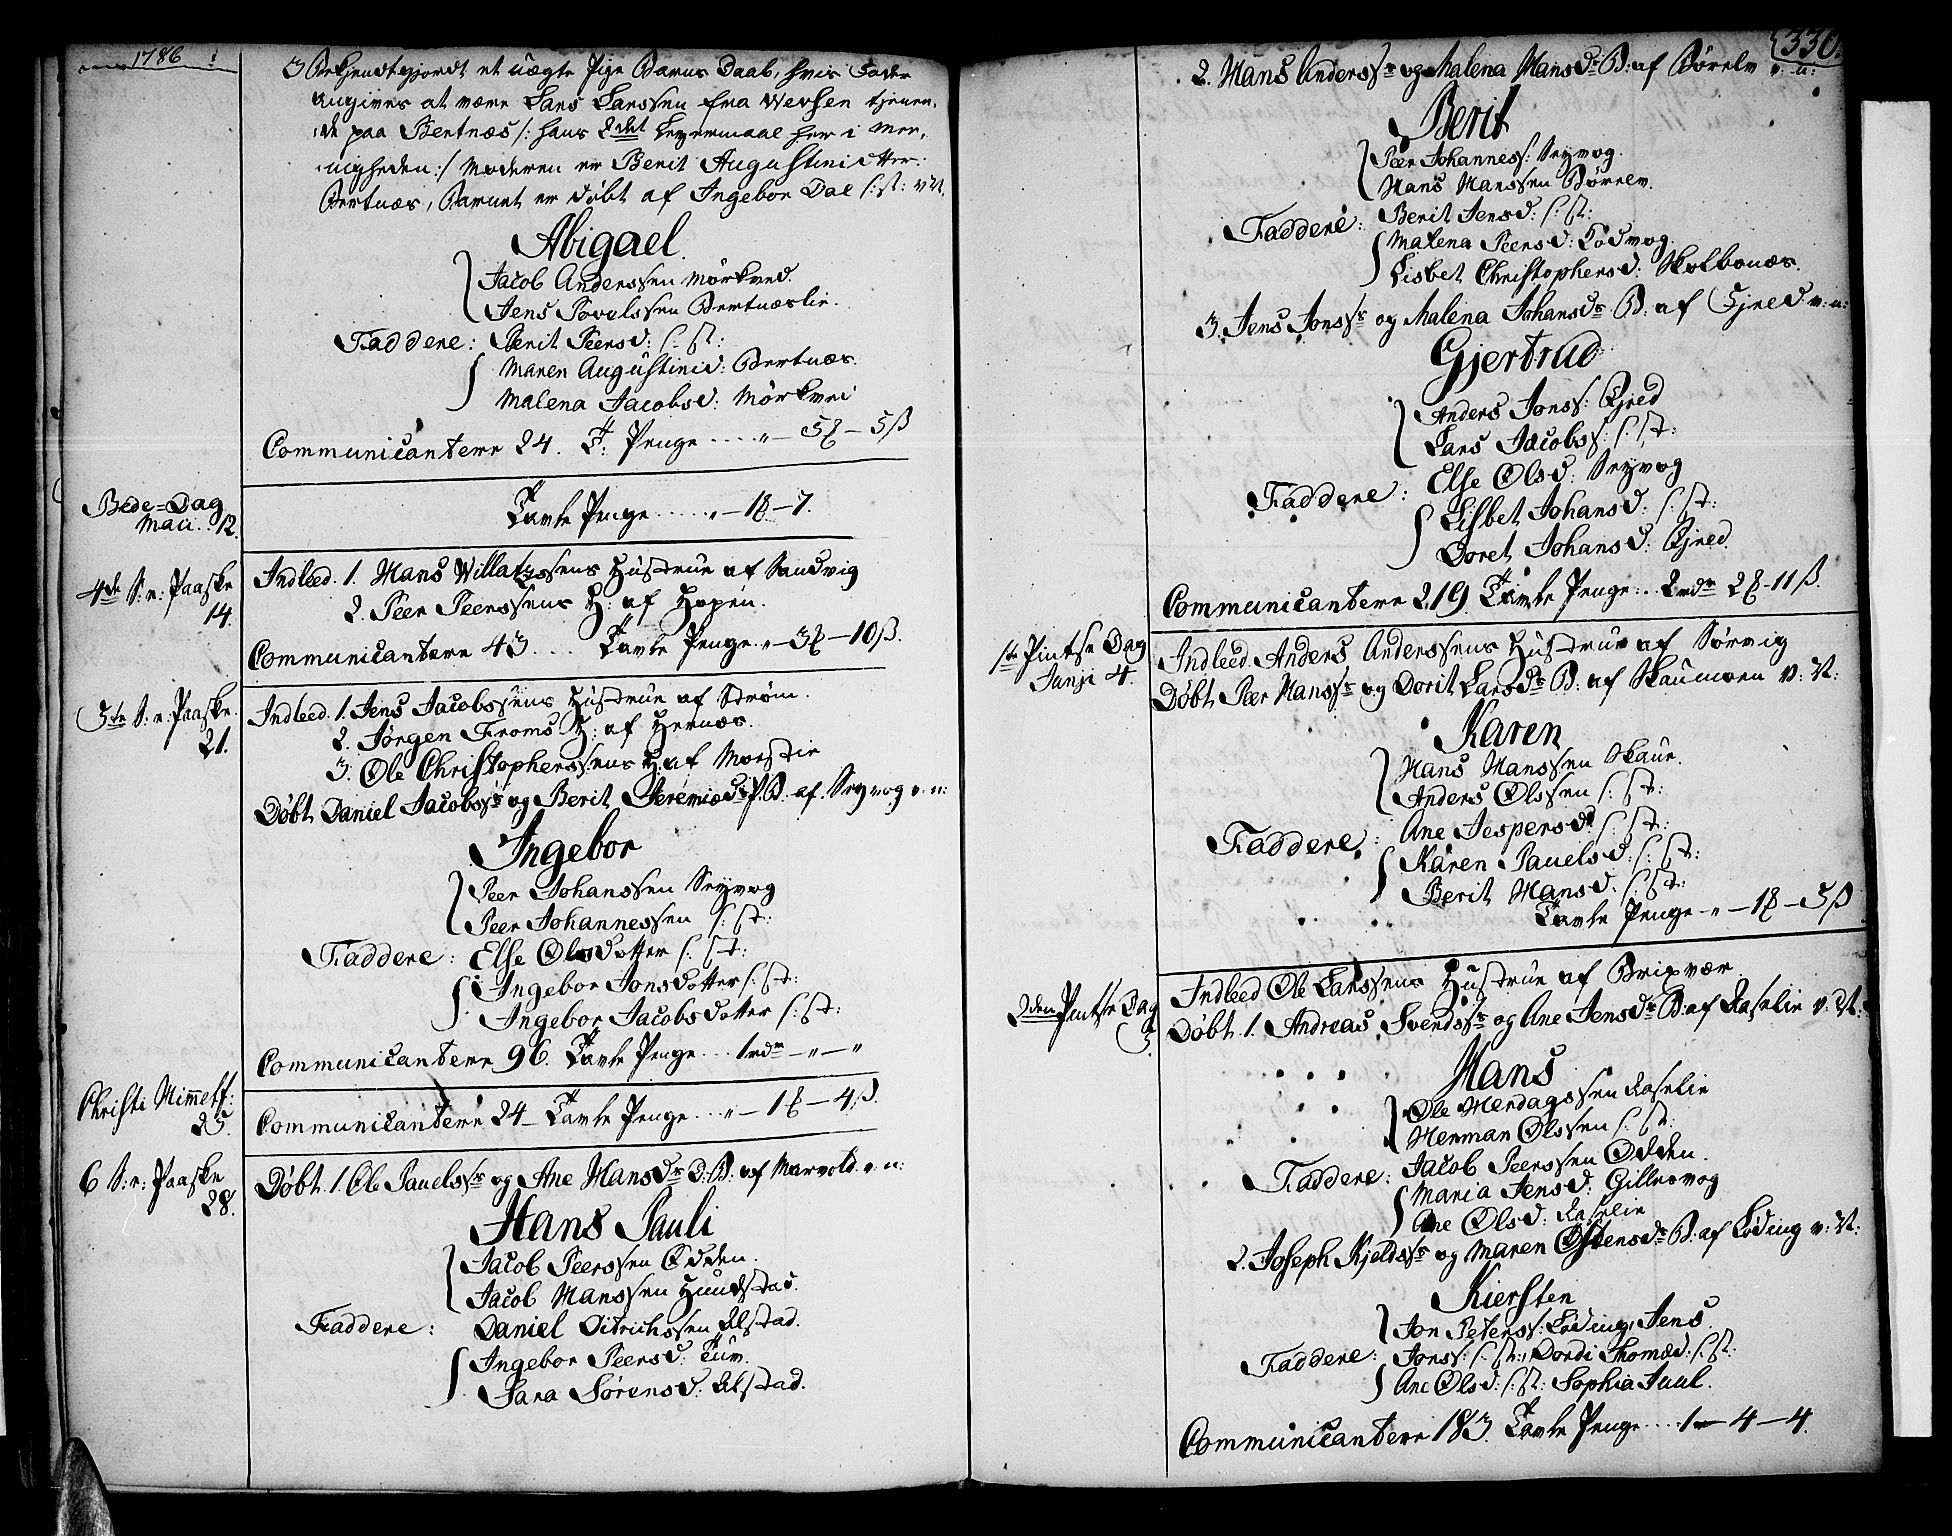 1786
3 Bekjendtgjordt et uægte Pige Barns Daab, hvis Fader
angives at være Lars Larssen fra Wevsen tjenen,
de paa Bertnæs /: hans 2det Leyermaal her i Me,
nigheden :/ Moderen er Berit Augustinidtter:
Bertnæs, Barnet er døbt af Ingebor Dal /: st: v: N.
Abigael
Jacob Anderssen Mörkved.
Jens Povelssen Bertnæslie.
Faddere: Berit Peersd: /: st:
Maren Augustinid: Bertnæs.
Malena Jacobsd: Mörkved
Communicantere 24. T: Penge .... " — 5 — 5 ß
Bede=Dag
Maii. 12.
Tavle Penge ..... " — 1 — 7.
4de S: e: Paaske
14.
Indleed. 1. Hans Willatzssens Hustrue af Sandvig
2. Peer Peerssens H: af Hopen.
Communicantere 43 .... Tavle Penge " — 3 — 10 ß.
5te S: e: Paaske
21.
Indleed. 1. Jens Jacobssens Hustrue af Strøm.
2. Jörgen Froms H: af Hernæs.
3. Ole Christopherssens H: af Morstie
Døbt Daniel Jacobssr og Berit Jeremiædr P. B. af Seyvog v: n:
Ingebor
Peer Johanssen Seyvog
Peer Johannessen /: st:
Faddere: Else Olsdotter /: st:
Ingebor Jonsdotter /: st:
Ingebor Jacobsdotter /: st:
Communicantere 96. Tavle Penge ... 1 rdr — " — "
Christi Himmelf:
25.
Communicantere 24 — Tavle Penge ... " — 1 — 4 ß.
6 S: e: Paaske
28.
Døbt. 1. Ole Pauelssr og Ane Hansdr D. B. af Marvold v: n:
Hans Pauli
Jacob Peerssen Odden.
Jacob Hanssen Hundstad.
Faddere: Daniel Ditrichssen Alstad.
Ingebor Peersd: Tuv.
Sara Sörensd: Alstad.
330.
2. Hans Anderssr og Malena Hansdr B: af Börelv v: n:
Berit
Peer Johanness: Seyvog.
Hans Hanssen Börelv.
Faddere: Berit Jensd: /: st:
Malena Peersd: Lödvog.
Lisbet Christophersd: Skolbonæs.
3. Jens Jonssr og Malena Johansdr B: af Gjred v: n:
Gjertrud
Anders Jonss: Gjred
Lars Jacobss: /: st:
Faddere: Else Olsd: Seyvog
Lisbet Johansd: /: st:
Doret Johansd: Gjred.
Communicantere 219. Tavle Penge: .. 2 rdr 2 — 11 ß.
1ste Pintse Dag
Junji 4.
Indleed. Anders Anderssens Hustrue af Sørvig
Døbt Peer Hanssr og Dorit Larsdr B: af Skaumoen v: N:
Karen
Hans Hanssen Skaue.
Anders Olssen /: st:
Faddere: Ane Jespersd: /: st:
Karen Pauelsd: /: st:
Berit Hansd: /: st:
Tavle Penge " — 1 — 5 ß
2den Pintse Dag
5.
Indleed Ole Larssens Hustrue af Brixvær
Døbt 1. Andreas Svendssr og Ane Jensdr B: af Kaselie v: N:
Hans
Ole Mendagssen Kaselie
Herman Olssen /: st:
Faddere: Jacob Peerssen Odden.
Maria Jensd: Gillesvog
Ane Olsd: Kaselie
2. Joseph Kjeldssr og Maren Östensdr B: af Löding v: N:
Kiersten
Jon Peterss: Löding, Jens
Faddere: Jonss: /: st: Dordi Thomæd: /: st:
Ane Olsd: /: st: Sophia Juul.
Communicantere 183. Tavle Penge .... 1 — 4 — 4.